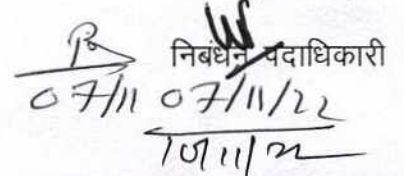 निबंधन पदाधिकारी
07/11 07/11/22
10/11/22